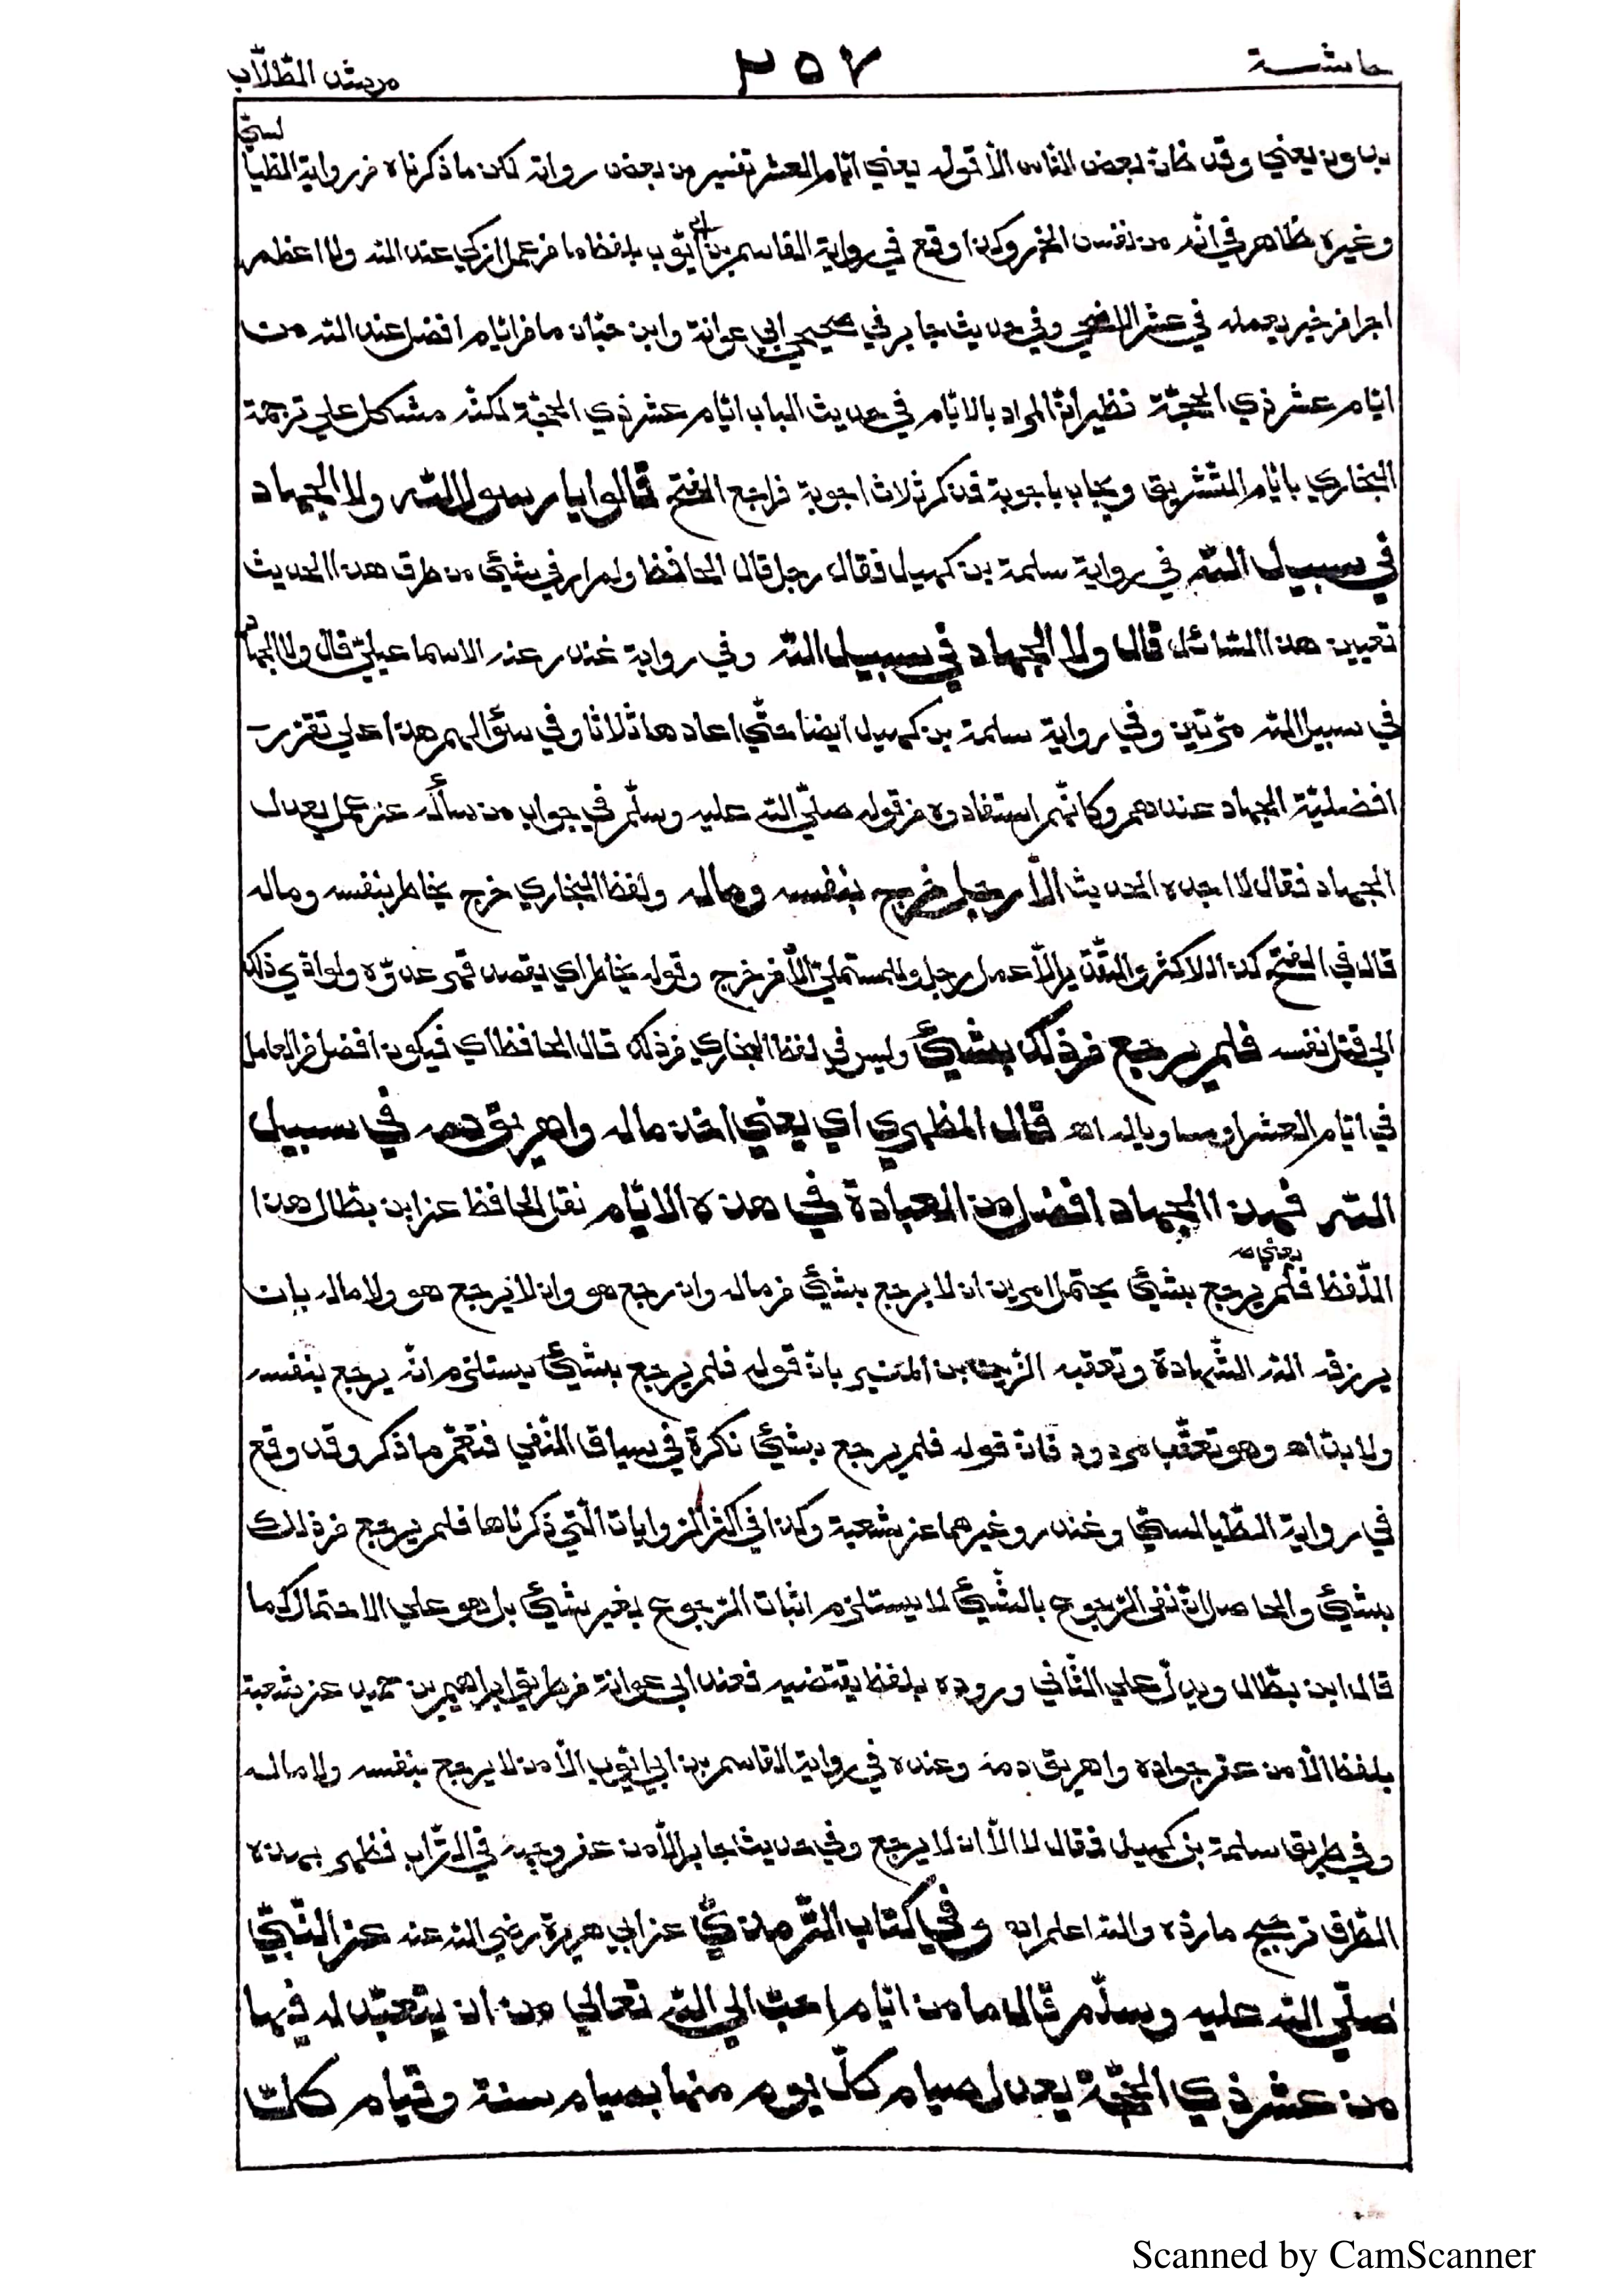 حاشية ٢٥٧ مرشد الطّلّاب
بدون يعني وقد ظنّ بعض النّاس الاّ قوله يعني ايّام العشر تفسير من بعض رواته لكن ما ذكرناه من رواية الطّيالسيّ
وغيره ظاهر في انّه من نفس الخبر وكذا وقع في رواية القاسم بن ابي ايّوب بلفظ ما من عمل ازكي عند الله ولا اعظم
اجرا من خير يعمله في عشر الاضحي وفي حديث جابر في صحيحي ابي عوانة وابن حبّان ما من ايّام افضل عند الله من
ايّام عشر ذي الحجّة فظهر انّ المراد بالايّام في حديث الباب ايّام عشر ذي الحجّة لكنّه مشكل علي ترجمة
البخاري بايّام التّشريق ويجاب باجوبة قد ذكر ثلاث اجوبة فراجع الفتح قالوا يا رسول الله ولا الجهاد
في سبيل الله في رواية سلمة بن كهيل فقال رجل قال الحافظ ولم ار في شئي من طرق هذا الحديث
تعيين هذا السّائل قال ولا الجهاد في سبيل الله وفي رواية غندر عند الاسماعيليّ قال ولا الجهاد
في سبيل الله مرّتين وفي رواية سلمة بن كهيل ايضا حتّي اعادها ثلاثا وفي سؤالهم هذا علي تقرر
افضليّة الجهاد عندهم وكانّهم استفادوه من قوله صلّي الله عليه وسلّم في جواب من سأله عن عمل يعدل
الجهاد فقال لا اجده الحديث الاّ رجل خرج بنفسه وماله ولفظ البخاري خرج يخاطر بنفسه وماله
قال في الفتح كذا للاكثر والتّقدير الاّ عمل رجل وللمستملي الاّ من خرج وقوله يخاطر اي يقصد قهر عدوّه ولو ادّي ذلك
الي قتل نفسه فلم يرجع من ذلك بشئي وليس في لفظ البخاري من ذلك قال الحافظ اي فيكون افضل من العامل
في ايّام العشر او مساويا له اه قال المظهري اي يعني اخذ ماله واهريق دمه في سبيل
الله فهذا الجهاد افضل من العبادة في هذه الايّام نقل الحافظ عن ابن بطّال هذا
اللّفظ يعني فلم يرجع بشئي يحتمل امرين ان لا يرجع بشئي من ماله وان رجع هو وان لا يرجع هو ولا ماله بان
يرزقه الله الشّهادة وتعقبه الزّين بن المنير بانّ قوله فلم يرجع بشئي يستلزم انّه يرجع بنفسه
ولا بدّ اه وهو تعقّب مردود فانّ قوله فلم يرجع بشئي نكرة في سياق النّفي فتعمّ ما ذكر وقد وقع
في رواية الطّيالسيّ وغندر وغيرهما عن شعبة وكذا في اكثر الرّوايات الّتي ذكرناها فلم يرجع من ذلك
بشئي والحاصل انّ نفي الرّجوع بالشّئي لا يستلزم اثبات الرّجوع بغير شئي بل هو علي الاحتمال كما
قال ابن بطّال ويدلّ علي الثّاني وروده بلفظ يقتضيه فعند ابي عوانة من طريق ابراهيم بن حميد عن شعبة
بلفظ الاّ من عقر جواده واهريق دمه وعنده في رواية القاسم بن ابي ايّوب الاّ من لا يرجع بنفسه ولا ماله
وفي طريق سلمة بن كهيل فقال لا الاّ ان لا يرجع وفي حديث جابر الاّ من عفر وجهه في التّراب فظهر بهذه
الطّرق ترجيح ما ردّه والله اعلم اه وفي كتاب التّرمذيّ عن ابي هريرة رضي الله عنه عن النّبيّ
صلّي الله عليه وسلّم قال ما من ايّام احبّ الي الله تعالي من ان يتعبّد له فيها
من عشر ذي الحجّة يعدل صيام كلّ يوم منها بصيام سنة وقيام كلّ
Scanned by CamScanner